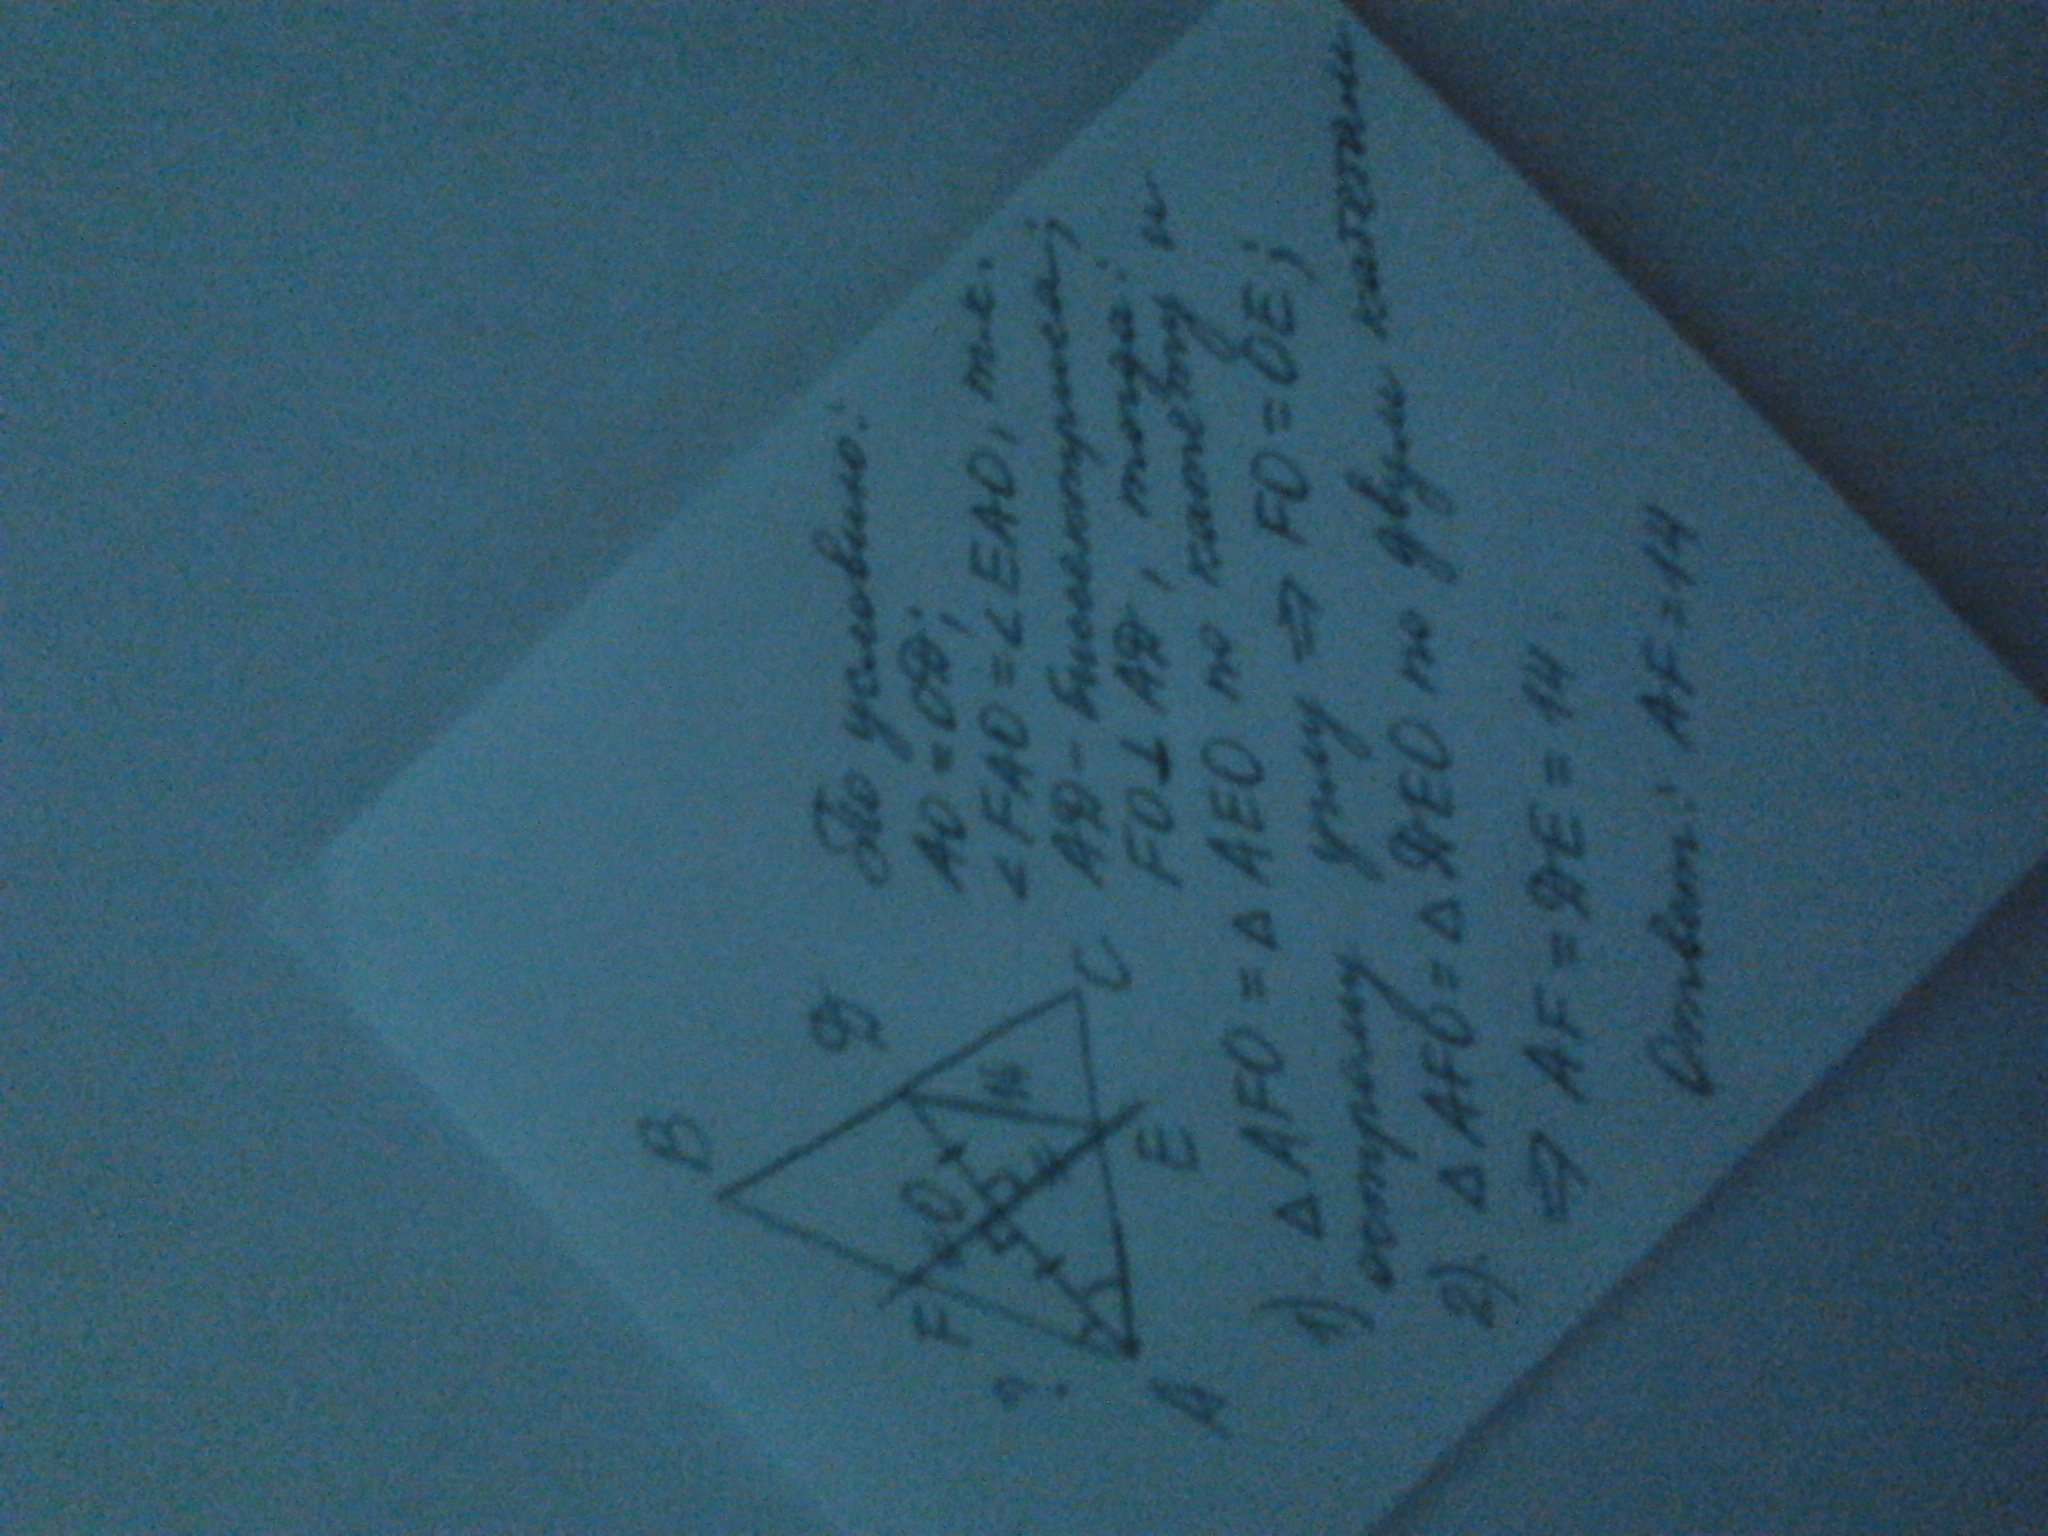 B
D
F
O
14
?
A
E
C
По условию:
AO = OD;
∠FAO = ∠EAO, т.к.
AD - биссектриса;
FO ⊥ AD, тогда:
1) Δ AFO = Δ AEO по катету и
острому углу ⇒ FO = OE;
2) Δ AFO = Δ DEO по двум катетам
⇒ AF = DE = 14
Ответ: AF = 14